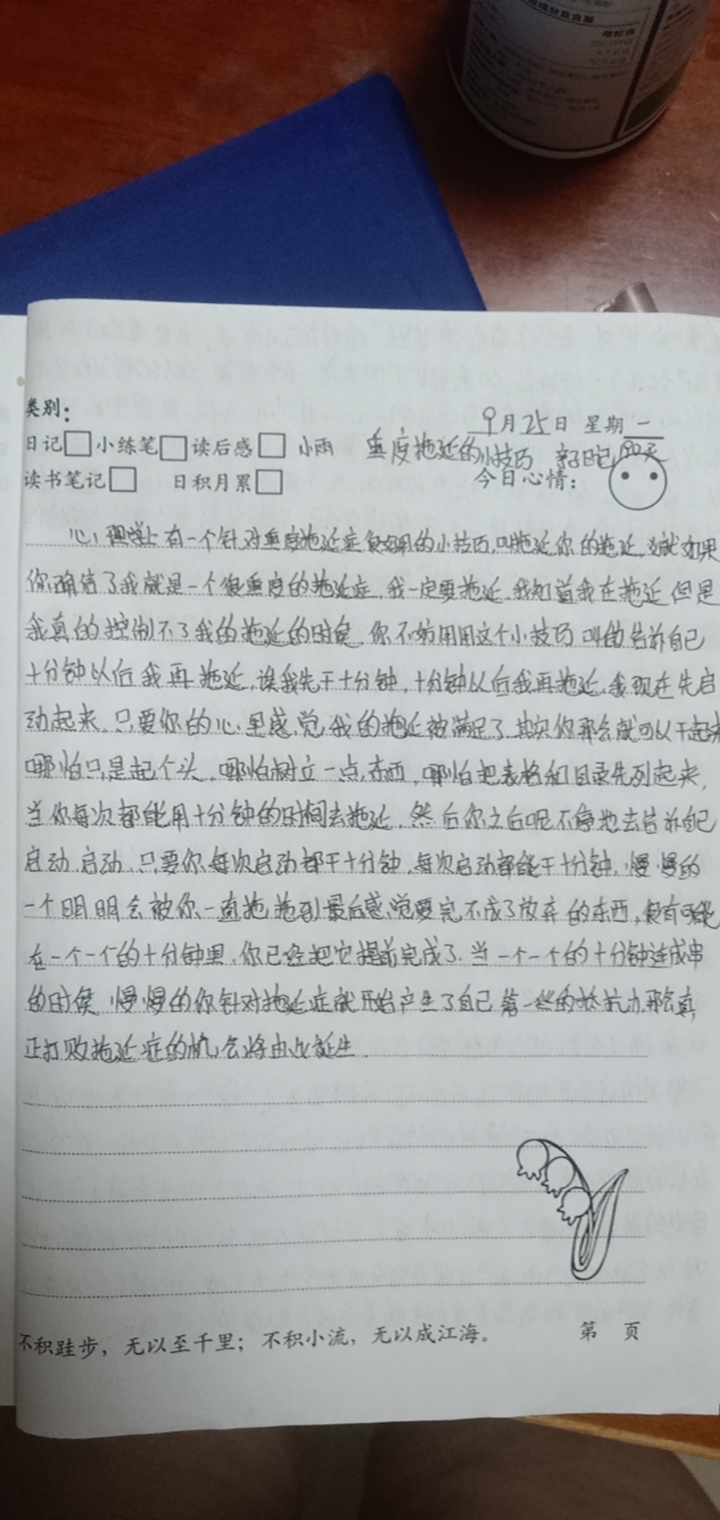 成分及含量
类别：
9月25日 星期一
日记□ 小练笔□ 读后感□ 小雨 重度拖延的小技巧
读书笔记□ 日积月累□ 今日心情：
心理学上有一个针对重度拖延症很好用的小技巧,叫拖延你的拖延,就如果
你确信了我就是一个很重度的拖延症,我一定要拖延,我知道我在拖延但是
我真的控制不了我的拖延的时候,你不妨用用这个小技巧叫做告诉自己
十分钟以后我再拖延,让我先干十分钟,十分钟以后我再拖延,我现在先启
动起来.只要你的心里感觉我的拖延被满足了.其实你那会就可以干起来
哪怕只是起个头.哪怕树立一点东西,哪怕把表格和目录先列起来,
当你每次都能用十分钟的时间去拖延.然后你之后呢不停地去告诉自己
启动.启动.只要你每次启动都干十分钟,每次启动都能干十分钟,慢慢的
一个明明会被你一直拖,拖到最后感觉要完不成了放弃的东西,很有可能
在一个一个的十分钟里.你已经把它提前完成了.当一个一个的十分钟连成串
的时候 慢慢的你针对拖延症就开始产生了自己第一丝的抵抗力.那会真
正打败拖延症的机会将由此诞生.
不积跬步，无以至千里；不积小流，无以成江海。 第 页